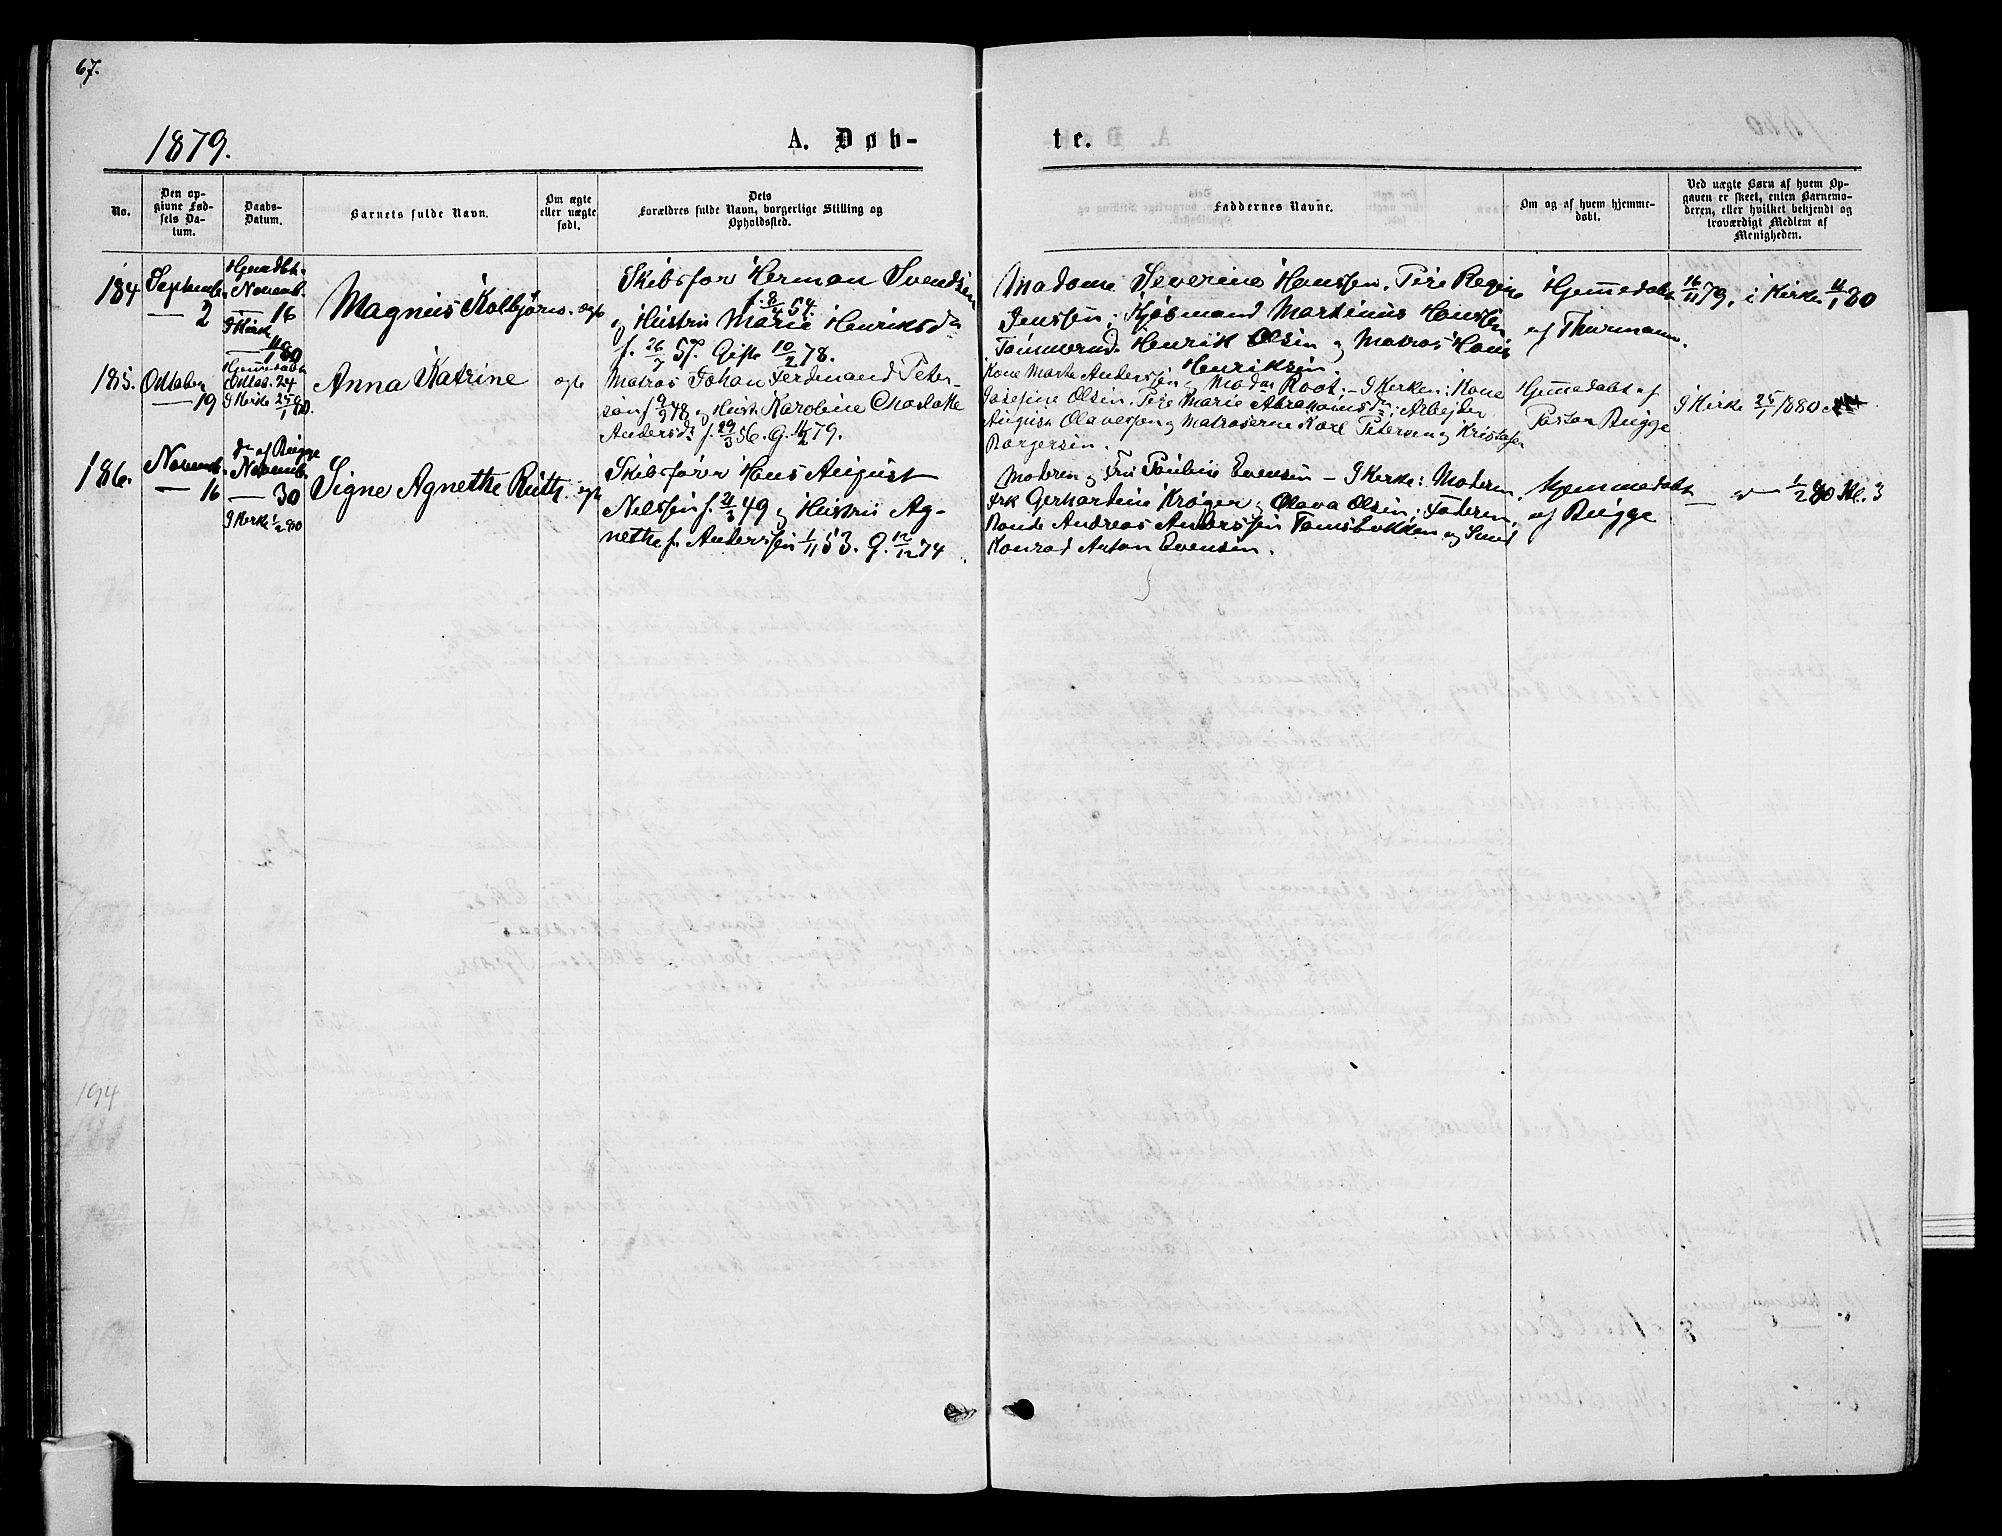 67.
1879.
A. Døb-
te.
No.
Den op-
givne Fød-
sels Da-
tum.
Daabs-
Datum.
Barnets fulde Navn.
Om ægte
eller uægte
født.
Dels
Forældres fulde Navn, borgerlige Stilling og
Opholdssted.
Faddernes Navne.
Om og af hvem hjemme-
døbt.
Ved uægte Børn af hvem Op-
gaven er skeet, enten Barnemo-
deren, eller hvilket bekjendt og
troværdigt Medlem af
Menigheden.
184
Septembr
— 2
Hjemdbt.
Novemb.
— 16
I Kirk
11/1 80
Magnus Kolbjørn.
ægte
Skibsfør Herman Svendsen
f. 8/4 54.
og Hustru Marie Henriksdr
f. 26/7 57. Gifte 10/2 78.
Madame Severine Hanssen. Pige Regine
Jenssen; Kjøbmand Martinus Hanssen
Tømmermd. Henrik Olsen og Matros Hans
Henriksen.
Hjemmedøbt
af Thurmann.
16/11 79, i Kirke 11/1 80
185.
Oktober
— 19
Hjemmedøbt
Oktob. 24
I Kirke 25/1 80.
Anna Katrine
ægte
Matros Johan Ferdinand Peter-
sen f. 9/9 48 og Hustr. Karoline Charlotte
Andersdr f. 29/3 56. G. 16/2 79.
Kone Marte Anderssen og Madm Root; – I Kerken: Kone
Josefine Olsen. Pige Marie Abrahamsdr; Arbejder
August Olavessen og Matroserne Karl Petersen og Kristofer
Borgersen.
Hjemmedøbt af
Pastor Bugge
I Kirke 25/1 1880
186.
Novemb.
— 16
dr af Bugge
Novemb.
— 30
I Kerke 1/2 80
Signe Agnethe Ruth.
ægte
Skibsfører Hans August
Nilssen f. 21/3 49 og Hustru Ag-
nethe f. Anderssen 1/11 53. G. 12/12 74.
Moderen og Fru Pauline Evensen – I Kerke: Moderen.
Frk Gerhardine Krøger og Olava Olsen; Faderen.
Konrad Anton Evensen.
Hjemmedøbt
af Bugge
1/2 80 Kl. 3
194